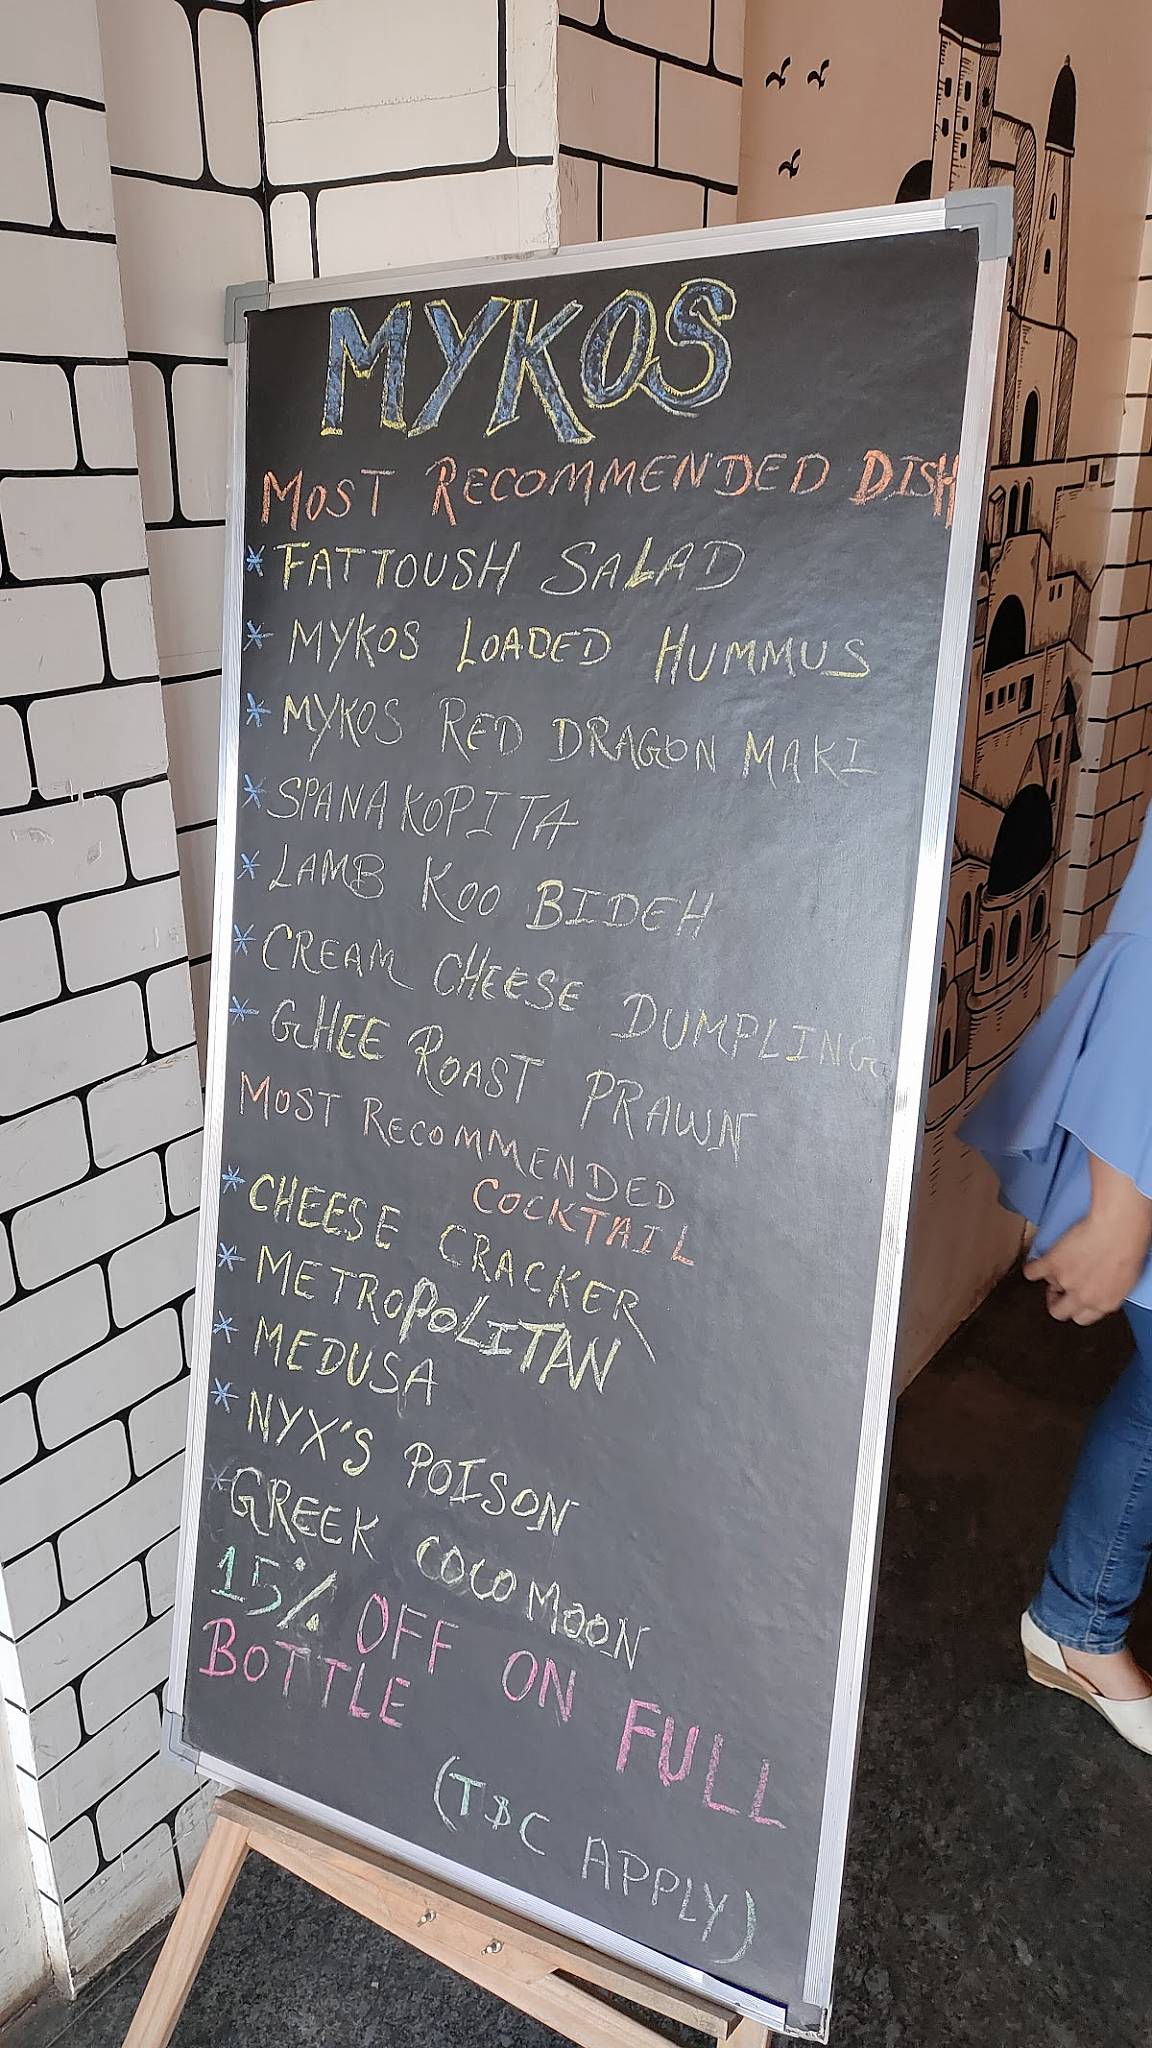 MYKOS
MOST RECOMMENDED DISH
* FATTOUSH SALAD
* MYKOS LOADED HUMMUS
* MYKOS RED DRAGON MAKI
* SPANAKOPITA
* LAMB KOO BIDEH
* CREAM CHEESE DUMPLING
* GHEE ROAST PRAWN
MOST RECOMMENDED
COCKTAIL
* CHEESE CRACKER
* METROPOLITAN
* MEDUSA
* NYX'S POISON
* GREEK COCO MOON
15% OFF ON FULL
BOTTLE
(T&C APPLY)